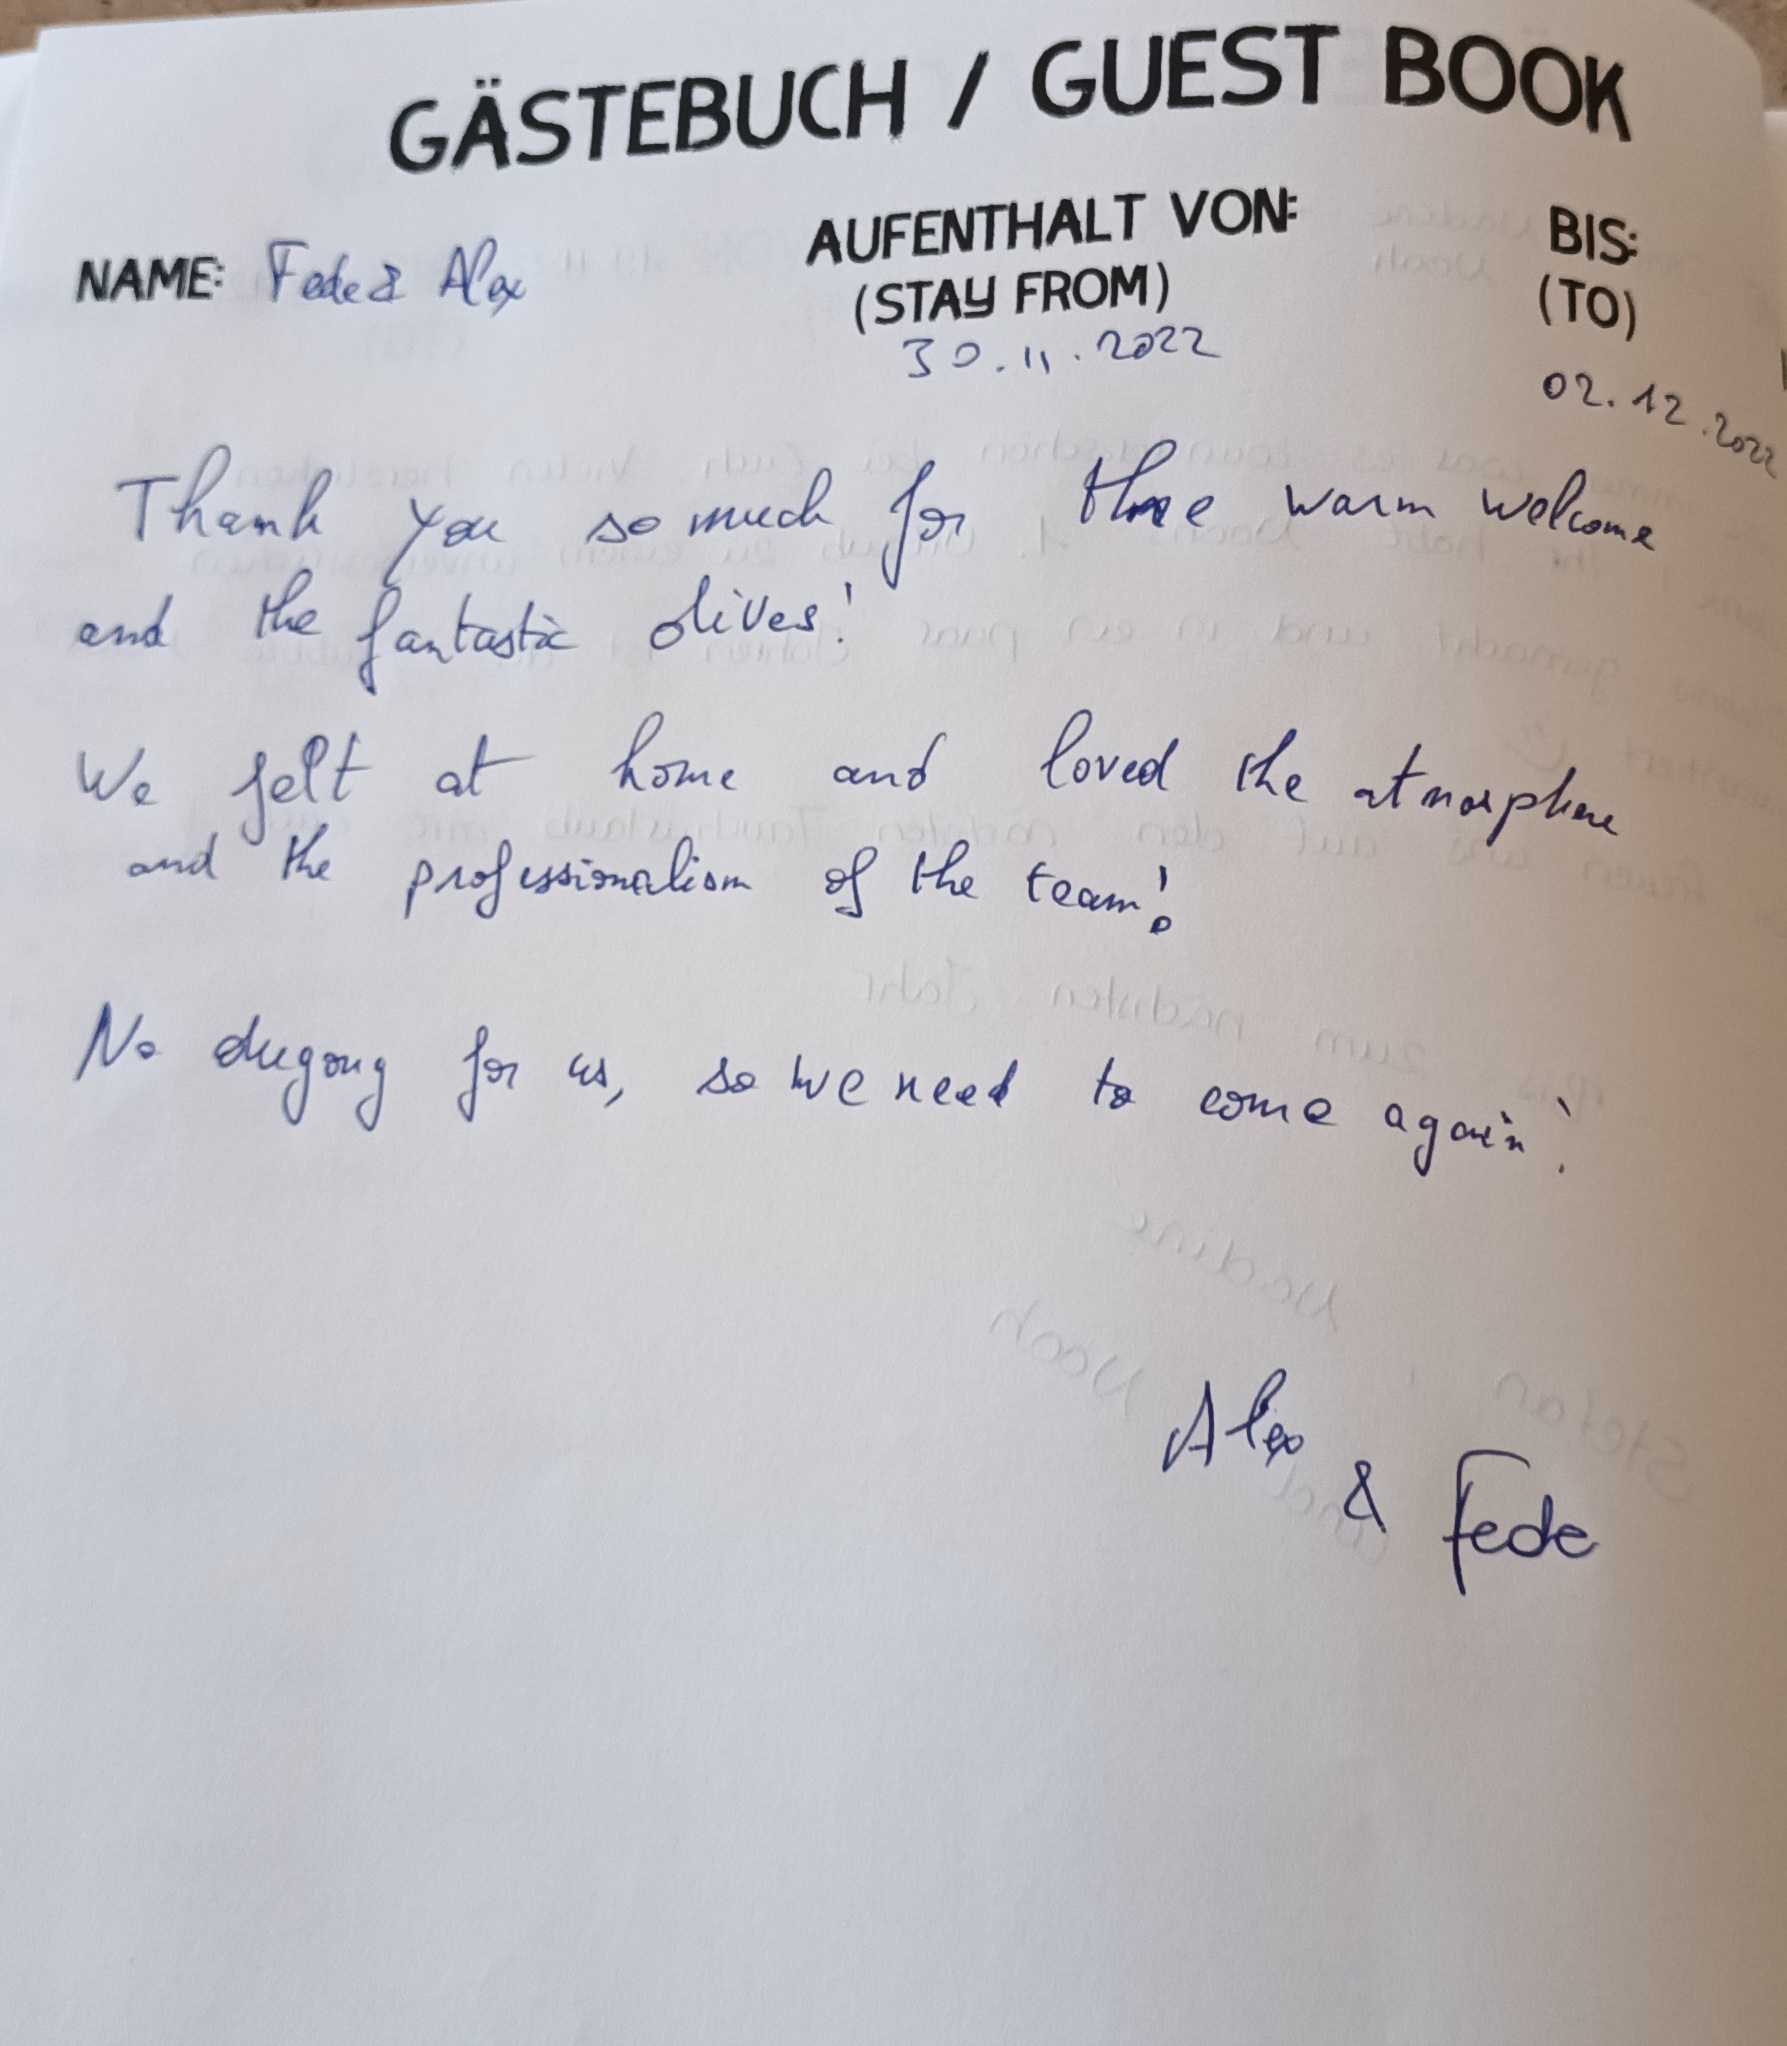 GÄSTEBUCH / GUEST BOOK
NAME: Fede & Alex AUFENTHALT VON: BIS:
(STAY FROM) (TO)
30.11.2022 02.12.2022
Thank you so much for the warm welcome
and the fantastic dives!
We felt at home and loved the atmosphere
and the professionalism of the team!
No dugong for us, so we need to come again!
Alex
& Fede